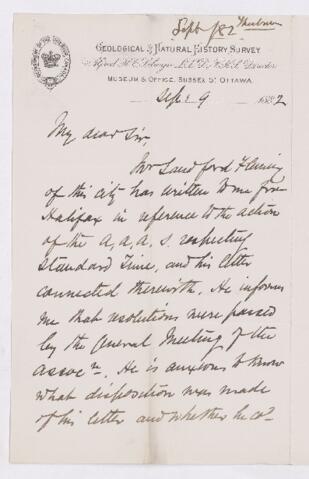 Sept /82
GEOLOGICAL & NATURAL HISTORY SURVEY
Alfred R. C. Selwyn L.L.D. F.R.S. Director
MUSEUM & OFFICE, SUSSEX ST OTTAWA.
Sept 9 1882
My dear Sir,
Mr Sandford Fleming
of this city has written to me from
Halifax in reference to the action
of the A. A. A. S. respecting
Standard Time, and his letter
connected therewith. He informs
me that resolutions were passed
by the General Meeting of the
Assocn. He is anxious to know
what disposition was made
of his letter and whether he cod